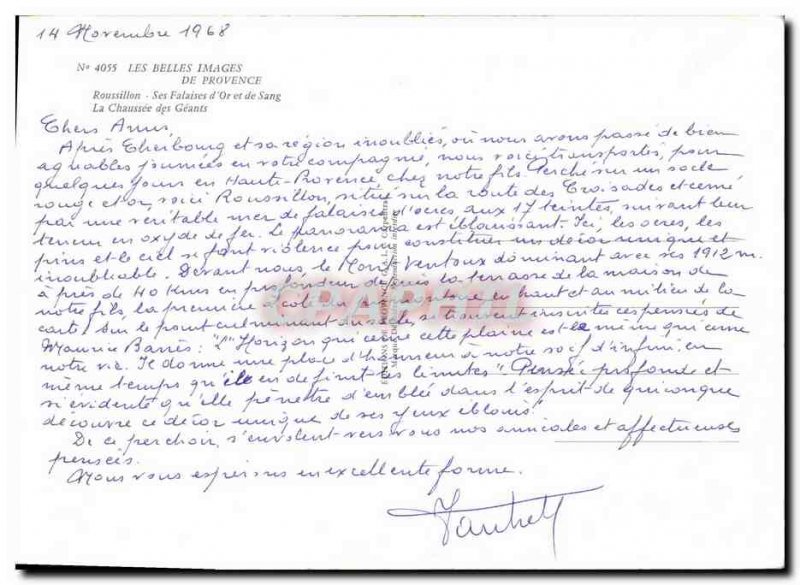 14 Novembre 1968
Nº 4055 LES BELLES IMAGES
DE PROVENCE
Roussillon - Ses Falaises d'Or et de Sang
La Chaussée des Géants
Chers Amis,
Après Cherbourg et sa région inoubliés, où nous avons passé de bien
agréables journées en votre compagnie, nous voici transportés, pour
quelques jours en Haute-Provence chez notre fils. Perché sur un socle
rouge et or, voici Roussillon, situé sur la route des Croisades et cerné
par une véritable mer de falaises d'ocres, aux 17 teintes, suivant leur
teneur en oxyde de fer. Le panorama est éblouissant. Ici, les ocres, les
pins et le ciel se font violence pour constituer un décor unique et
inoubliable. Devant nous, le Mont Ventoux dominant avec ses 1912 m.
à près de 40 Kms en profondeur depuis la terrasse de la maison de
notre fils, la première à côté du en haut et au milieu de la
carte. Sur le point culminant du socle, se trouvent inscrites ces pensées de
Maurice Barrès: "L'Horizon qui cerne cette plaine est le même qui cerne
notre vie. Il donne une place d'honneur à notre soif d'infini en
même temps qu'il en définit les limites" Pensée profonde et
si évidente qu'elle pénètre d'emblée dans l'esprit de quiconque
découvre ce décor unique de ses yeux éblouis.
De ce perchoir, s'envolent vers vous nos amicales et affectueuses
pensées.
Nous vous espérons en excellente forme.